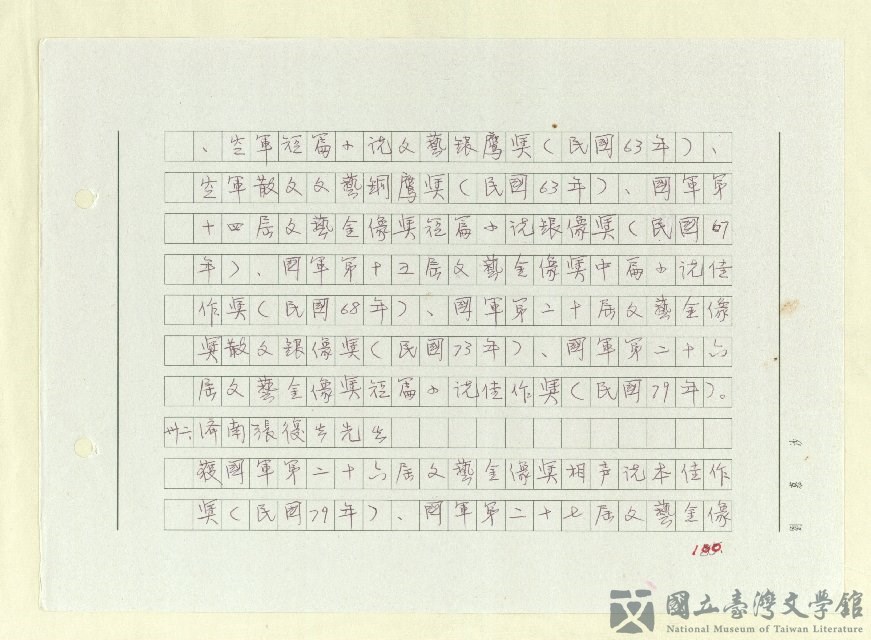 、空軍短篇小說文藝銀鷹獎(民國63年)、
空軍散文文藝銅鷹獎(民國63年)、國軍第
十四屆文藝金像獎短篇小說銀像獎(民國67
年)、國軍第十五屆文藝金像獎中篇小說佳
作獎(民國68年)、國軍第二十屆文藝金像
獎散文銀像獎(民國73年)、國軍第二十六
屆文藝金像獎短篇小說佳作獎(民國79年)。
卅六濟南張復生先生
獲國軍第二十六屆文藝金像獎相声說本佳作
獎(民國79年)、國軍第二十七屆文藝金像
國立臺灣文學館
National Museum of Taiwan Literature